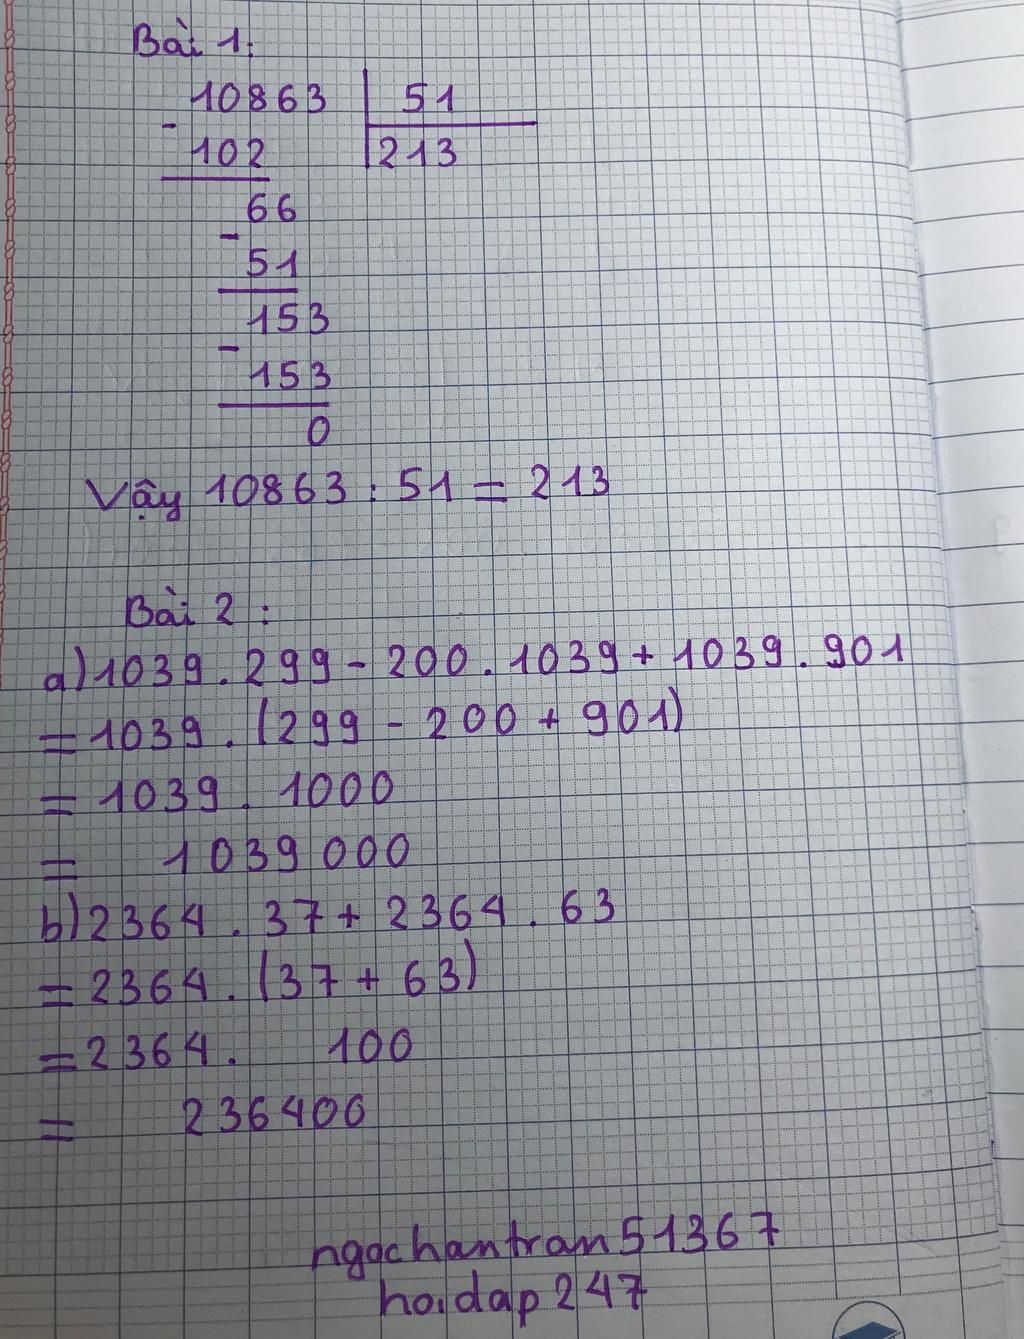 Bài 1:
10863 | 51
- 102 | 213
66
- 51
153
- 153
0
Vậy 10863 : 51 = 213
Bài 2 :
a) 1039 . 299 - 200 . 1039 + 1039 . 901
= 1039 . (299 - 200 + 901)
= 1039 . 1000
= 1039 000
b) 2364 . 37 + 2364 . 63
= 2364 . (37 + 63)
= 2364 . 100
= 236400
ngochantran51367
hoidap247